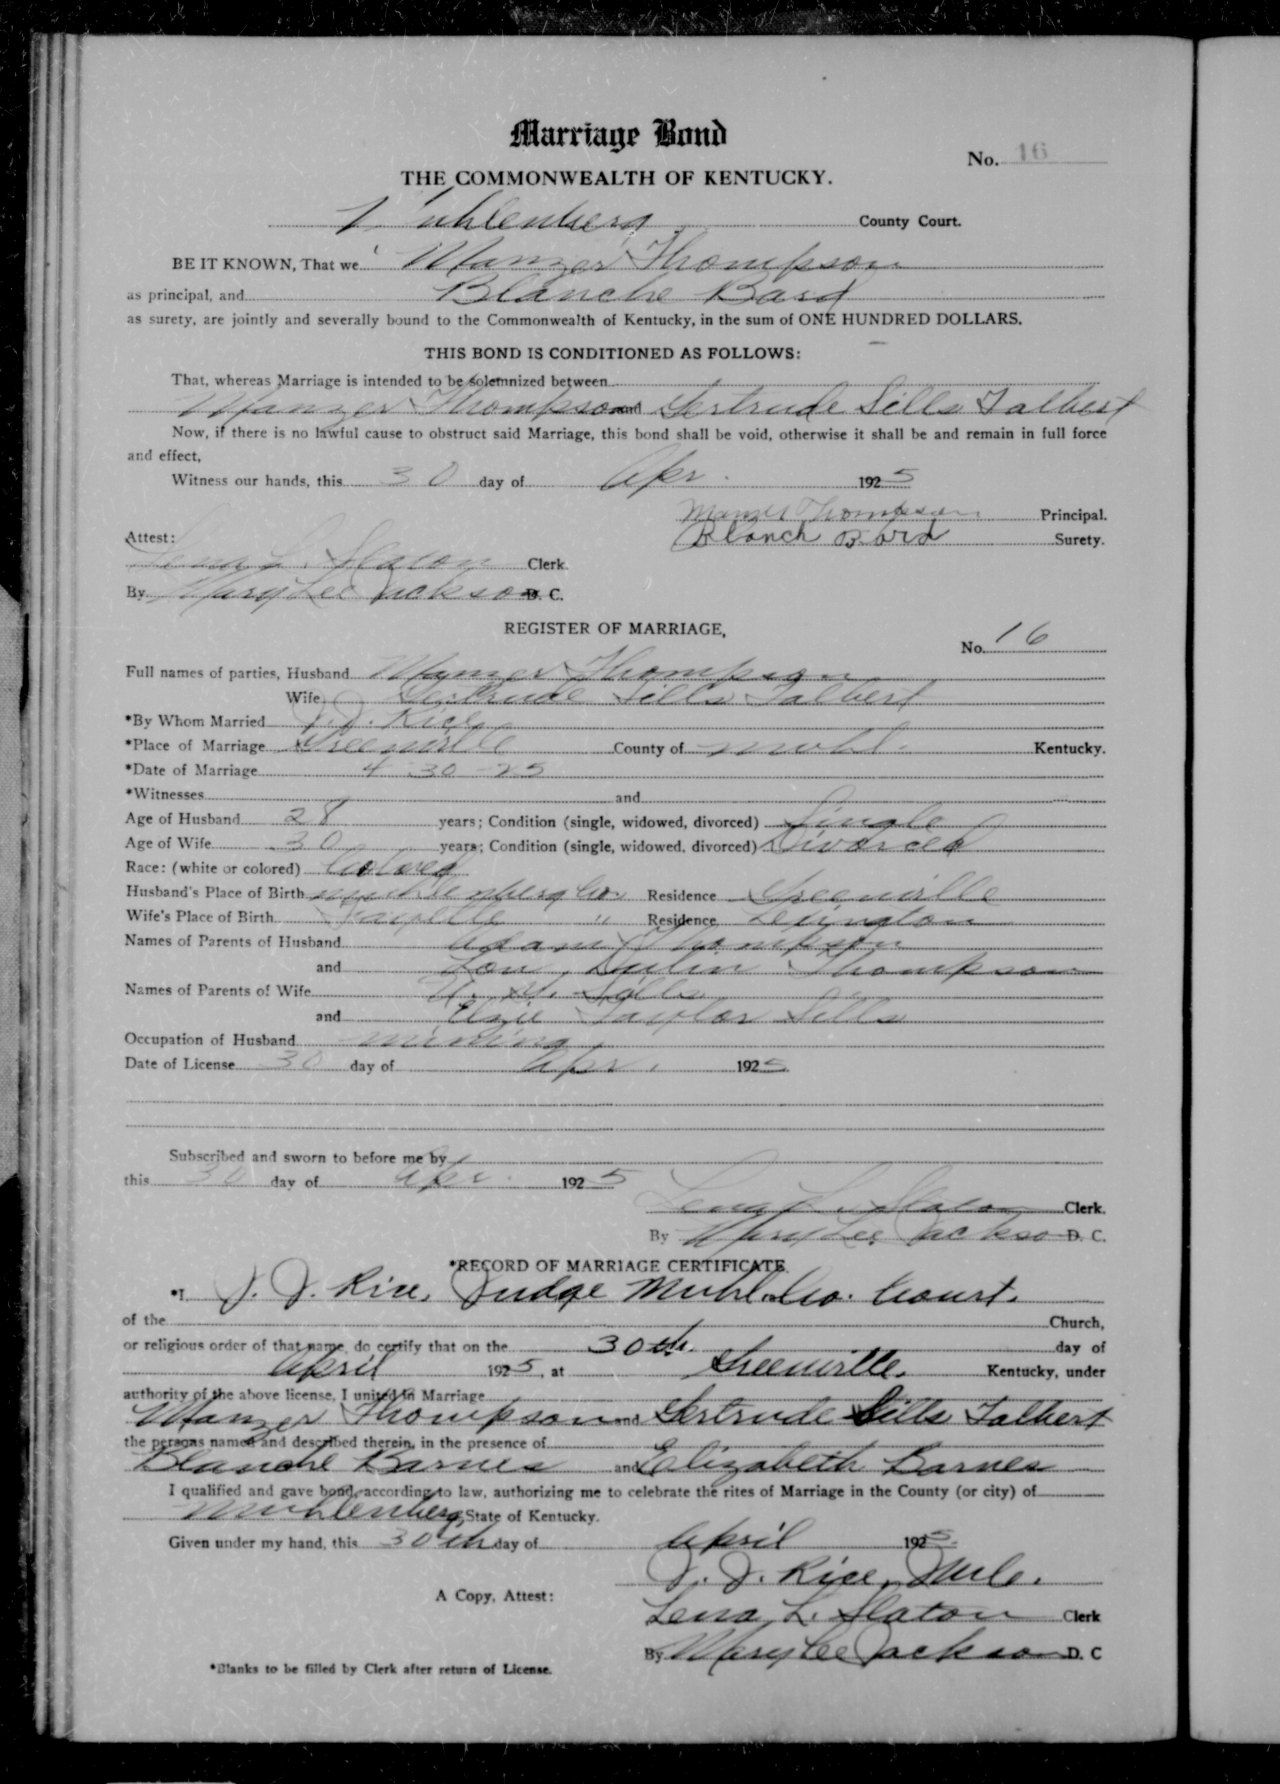 Marriage Bond
No. 16
THE COMMONWEALTH OF KENTUCKY.
Muhlenberg County Court.
BE IT KNOWN, That we Manzer Thompson
as principal, and Blanche Bard
as surety, are jointly and severally bound to the Commonwealth of Kentucky, in the sum of ONE HUNDRED DOLLARS.
THIS BOND IS CONDITIONED AS FOLLOWS:
That, whereas Marriage is intended to be solemnized between
Manzer Thompson and Gertrude Sills Talbert
Now, if there is no lawful cause to obstruct said Marriage, this bond shall be void, otherwise it shall be and remain in full force
and effect,
Witness our hands, this 30 day of Apr. 1925
Manzer Thompson Principal.
Attest: Blanch Bard Surety.
Lena L. Slaton Clerk.
By Mary Lee Jackson D. C.
REGISTER OF MARRIAGE,
No. 16
Full names of parties, Husband Manzer Thompson
Wife Gertrude Sills Talbert
*By Whom Married J. J. Rice
*Place of Marriage Greenville County of Muhl. Kentucky.
*Date of Marriage 4-30-25
*Witnesses and
Age of Husband 28 years; Condition (single, widowed, divorced) Single
Age of Wife 30 years; Condition (single, widowed, divorced) Divorced
Race: (white or colored) Colored
Husband's Place of Birth Muhlenberg Co. Residence Greenville
Wife's Place of Birth Fayette " Residence Lexington
Names of Parents of Husband Adam Thompson
and Lou Dulin Thompson
Names of Parents of Wife Sills
and Elzie Taylor Sills
Occupation of Husband mining
Date of License 30 day of Apr. 1925
Subscribed and sworn to before me by
this 30 day of Apr. 1925
Lena L. Slaton Clerk.
By Mary Lee Jackson D. C.
*RECORD OF MARRIAGE CERTIFICATE.
*I J. J. Rice, Judge Muhl. Co. Court.
of the Church,
or religious order of that name, do certify that on the 30th. day of
April 1925, at Greenville. Kentucky, under
authority of the above license, I united in Marriage
Manzer Thompson and Gertrude Sills Talbert
the persons named and described therein, in the presence of
Blanche Barnes and Elizabeth Barnes
I qualified and gave bond, according to law, authorizing me to celebrate the rites of Marriage in the County (or city) of
Muhlenberg, State of Kentucky.
Given under my hand, this 30th day of April 1925.
J. J. Rice,
A Copy, Attest:
Lena L. Slaton Clerk
By Mary Lee Jackson D. C
*Blanks to be filled by Clerk after return of License.